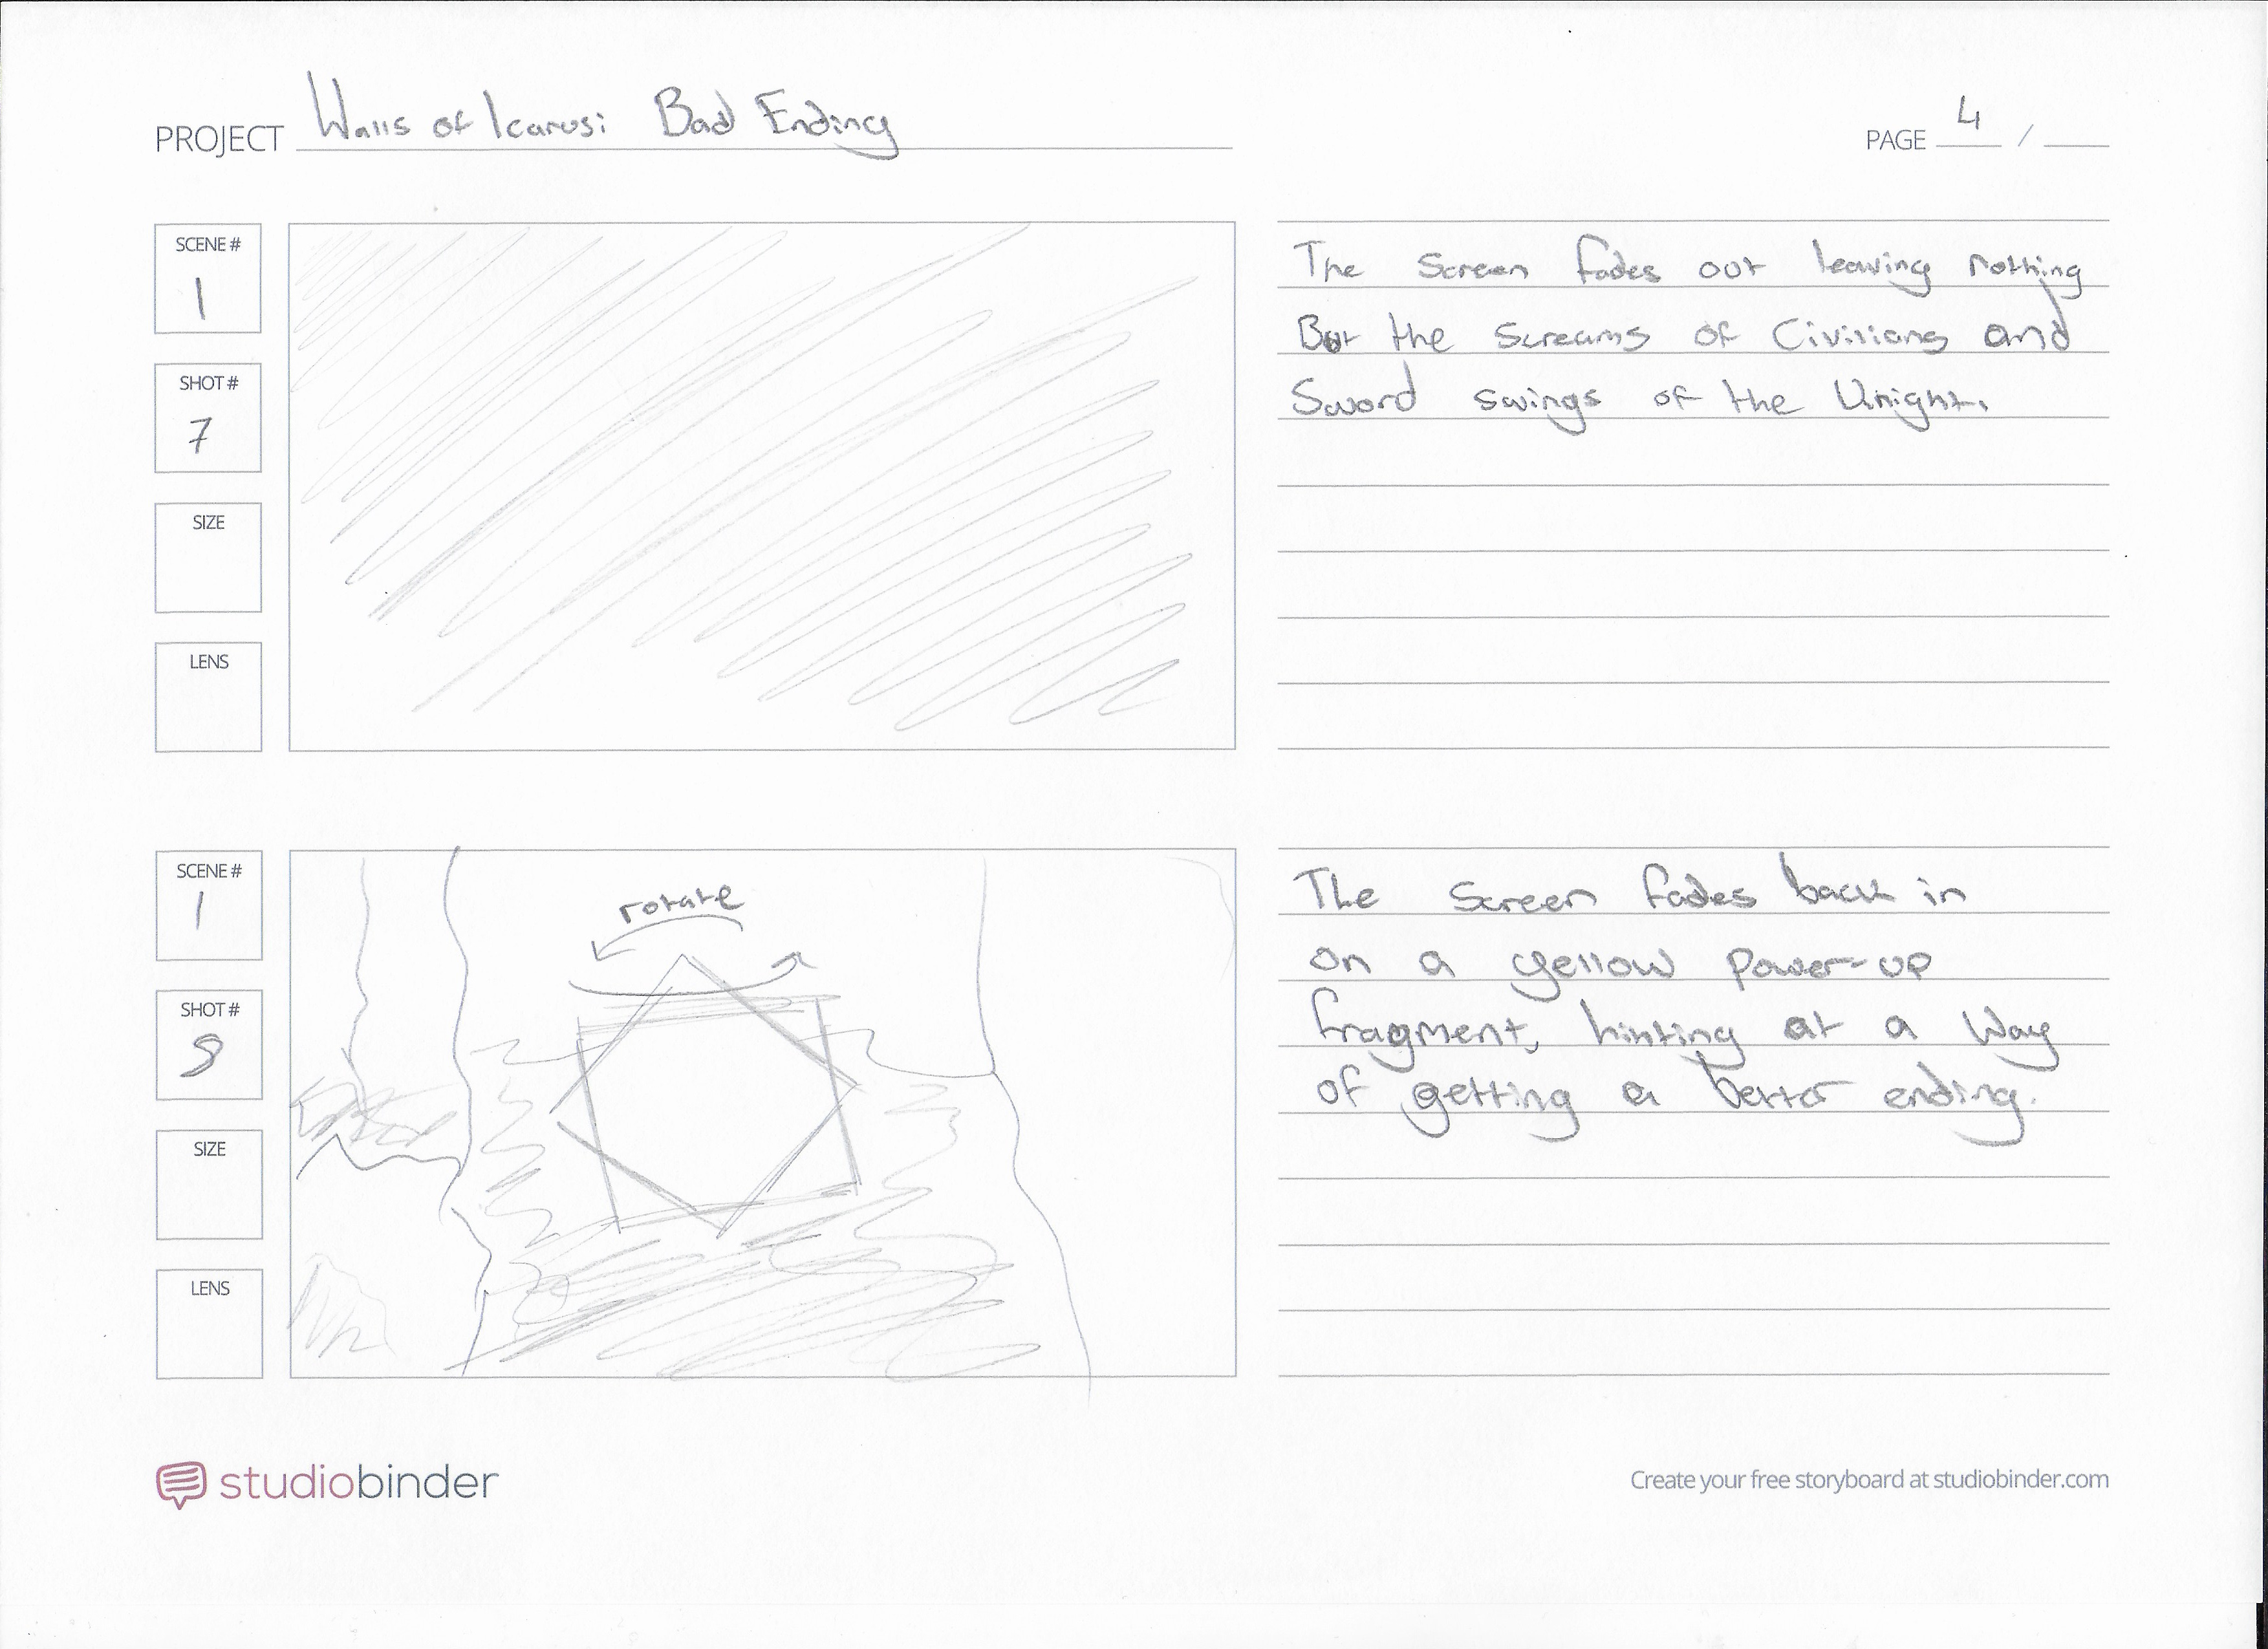 PROJECT Walls of Icarus: Bad Ending
PAGE 4 /
SCENE #
1
SHOT #
7
SIZE
LENS
The Screen fades out leaving nothing
But the screams of Civilians and
Sword swings of the Knight.
SCENE #
1
SHOT #
8
SIZE
LENS
rotate
The Screen fades back in
on a yellow power-up
fragment, hinting at a way
of getting a better ending.
studiobinder
Create your free storyboard at studiobinder.com